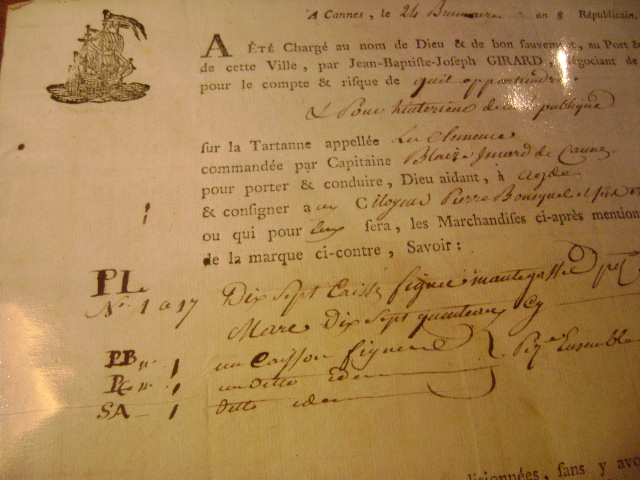 A Cannes, le 24 Brumaire an 8 Républicain.
A ÉTÉ Chargé au nom de Dieu & de bon sauvement, au Port &
de cette Ville, par Jean-Baptiſte-Joseph GIRARD, Négociant de
pour le compte & risque de qu'il appartiendra
& Pour l'interieur de la republique
sur la Tartanne appellée La Clemence
commandée par Capitaine Blaize Jmard de Cannes
pour porter & conduire, Dieu aidant, à Agde
& conſigner a ux Citoyens Pierre Bousquet et fils
ou qui pour Eux ſera, les Marchandiſes ci-après mention
de la marque ci-contre, Savoir :
PL
N.° 1 a 17 Dix Sept Caisses figues
Marc Dix Sept quintaux
PB n.° 1 un Caisson figues
PC n.° 1 un ditto idem Ensemble
SA 1 ditto idem
ſans y avo